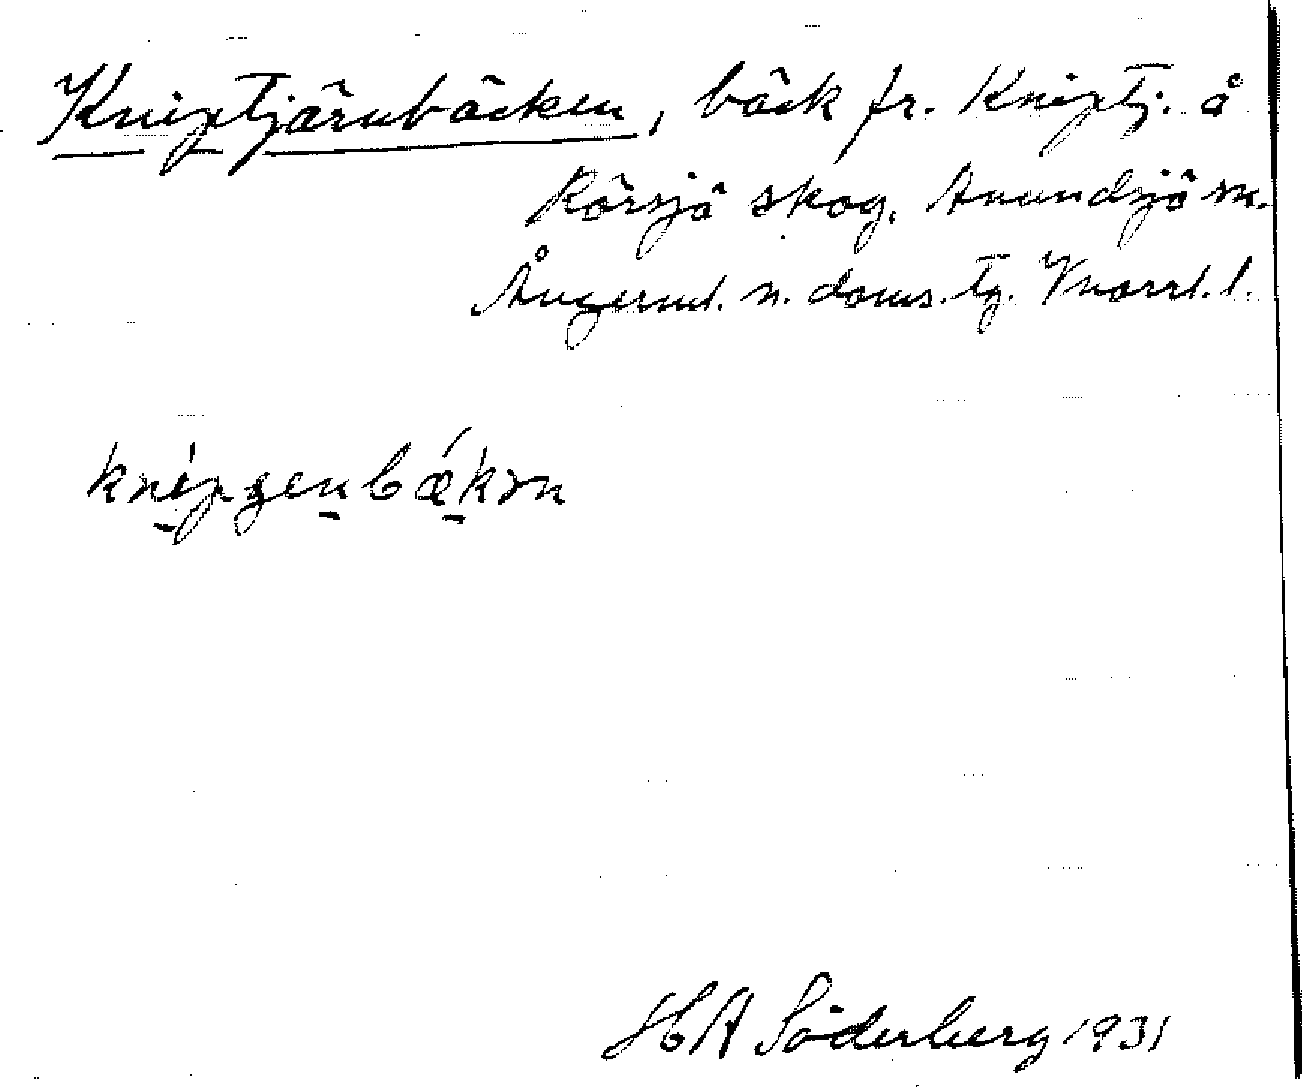 Kniptjärnbäcken, bäck fr. Kniptj. å
Rörsjö skog, Anundsjö sn.
Ångerml. n. doms. tg. Vnorrl. l.
HA Söderberg 1931